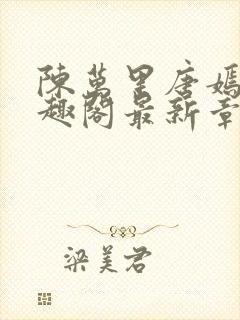 陳萬里唐嫣
趣閣最新章
梁美君